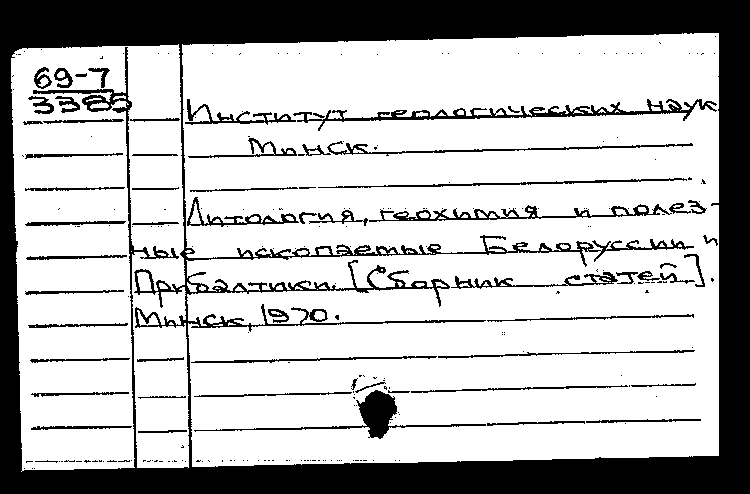 69-7
3385
Институт геологических наук
Минск.
Литология, геохимия и полез-
ные ископаемые Белоруссии и
Прибалтики. [Сборник статей].
Минск, 1970.